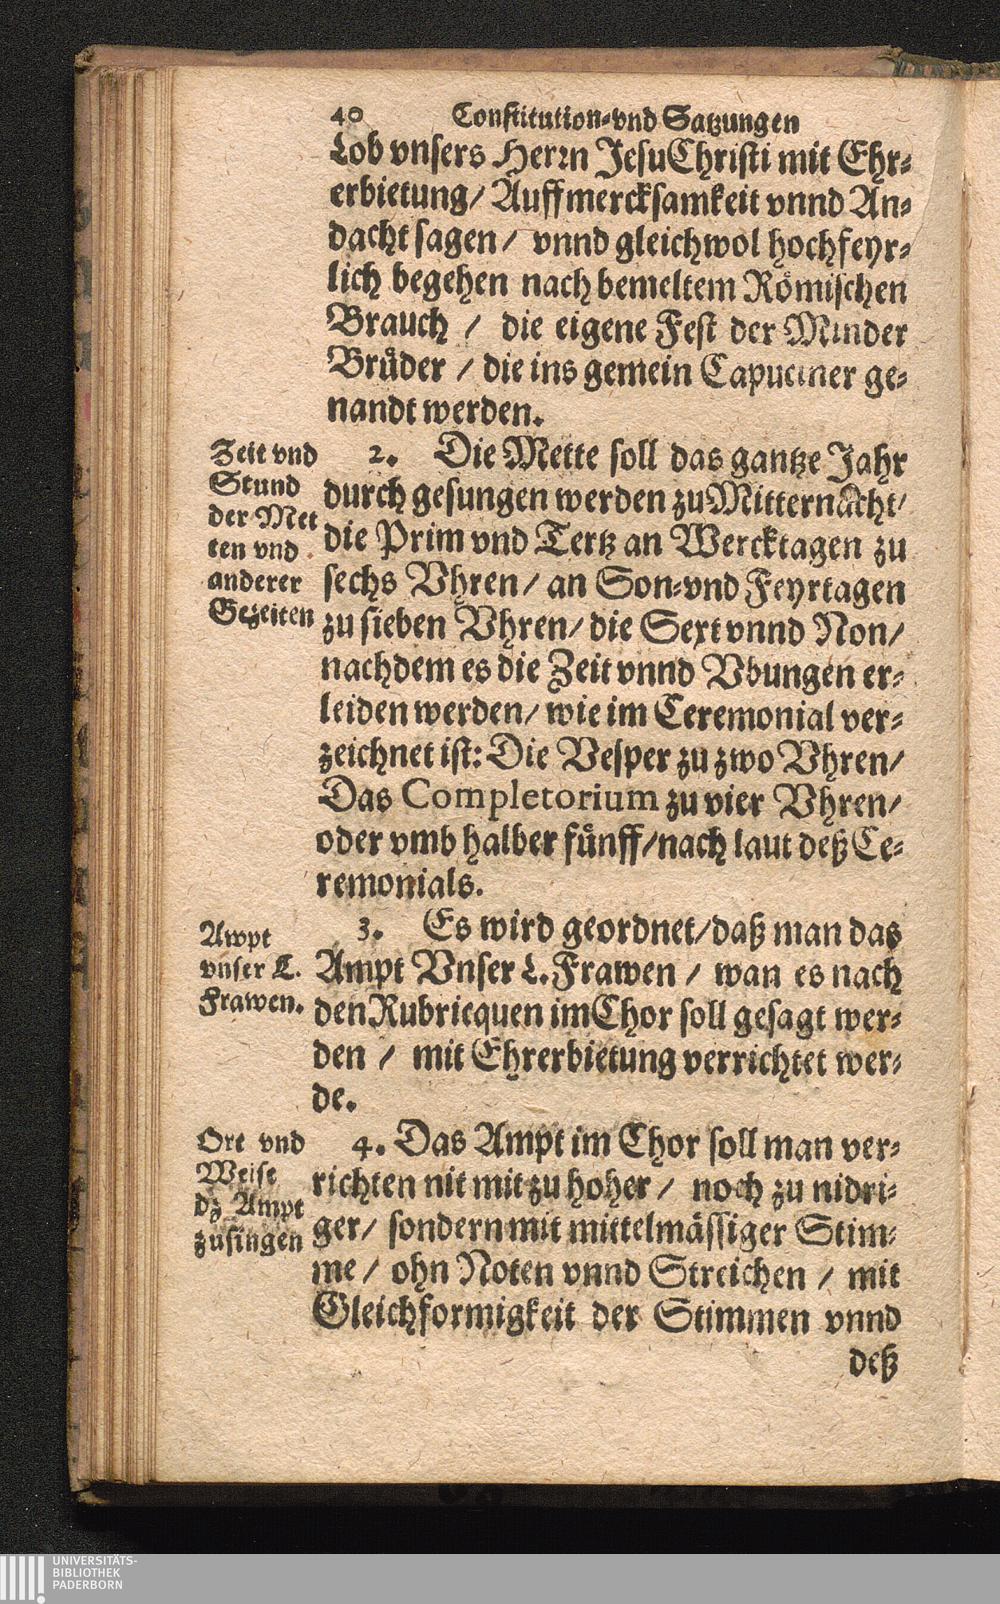 40 Constitution-vnd Satzungen
Lob vnsers Herrn JesuChristi mit Ehr-
erbietung/ Auffmercksamkeit vnnd An-
dacht sagen/ vnnd gleichwol hochfeyr-
lich begehen nach bemeltem Römischen
Brauch / die eigene Fest der Minder
Brüder / die ins gemein Capuciner ge-
nandt werden.
Zeit vnd
Stund
der Met
ten vnd
anderer
Gezeiten
2. Die Mette soll das gantze Jahr
durch gesungen werden zu Mitternacht/
die Prim vnd Tertz an Wercktagen zu
sechs Vhren/ an Son-vnd Feyrtagen
zu sieben Vhren/ die Sext vnnd Non/
nachdem es die Zeit vnnd Vbungen er-
leiden werden/ wie im Ceremonial ver-
zeichnet ist: Die Vesper zu zwo Vhren/
Das Completorium zu vier Vhren/
oder vmb halber fünff/nach laut deß Ce-
remonials.
Awpt
vnser L.
Frawen.
3. Es wird geordnet/daß man das
Ampt Vnser L. Frawen / wan es nach
den Rubricquen im Chor soll gesagt wer-
den / mit Ehrerbietung verrichtet wer-
de.
Ort vnd
Weise
dz Ampt
zusingen
4. Das Ampt im Chor soll man ver-
richten nit mit zu hoher / noch zu nidri-
ger/ sondern mit mittelmässiger Stim-
me / ohn Noten vnnd Streichen / mit
Gleichformigkeit der Stimmen vnnd
deß
UNIVERSITÄTS-
BIBLIOTHEK
PADERBORN